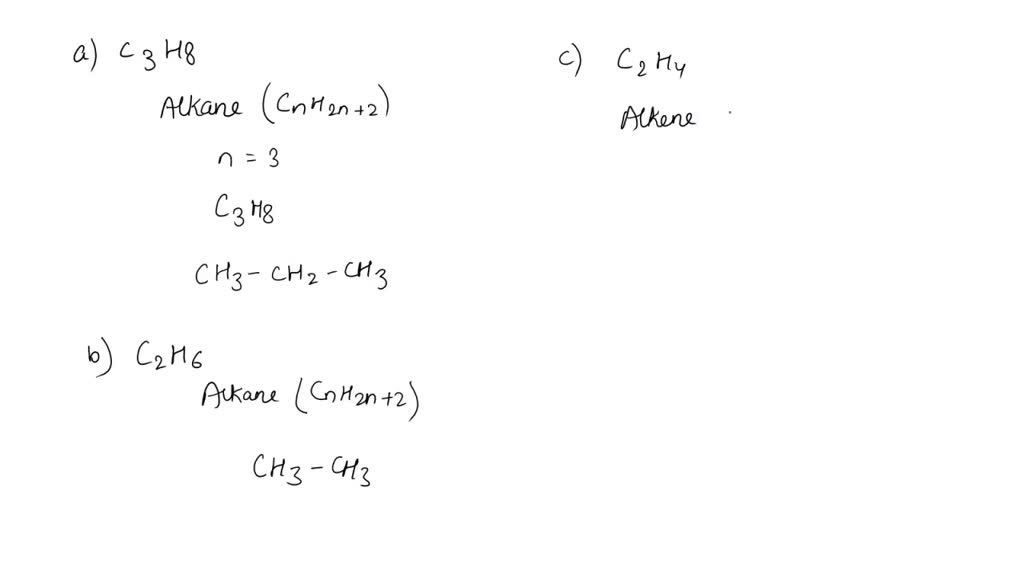 a) C3H8
Alkane (CnH2n+2)
n = 3
C3H8
CH3 - CH2 - CH3
b) C2H6
Alkane (CnH2n+2)
CH3 - CH3
c) C2H4
Alkene